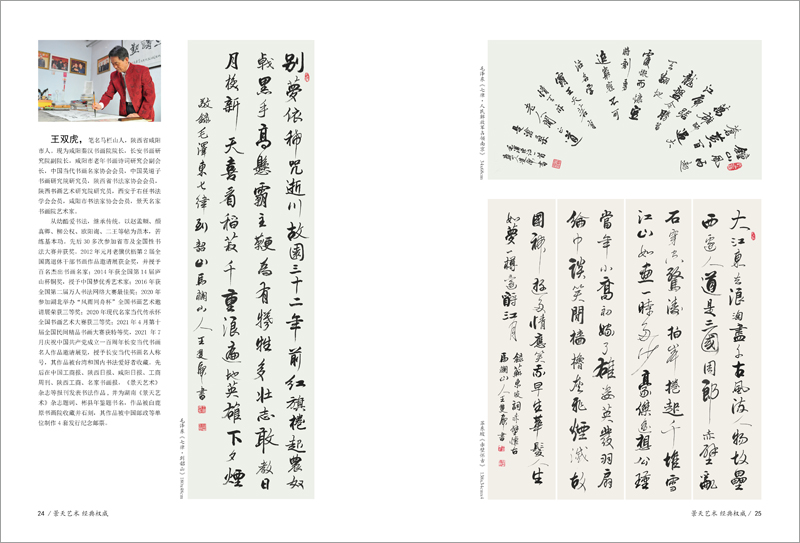 王双虎，笔名马栏山人，陕西省咸阳
市人。现为咸阳秦汉书画院院长，长安书画研
究院副院长，咸阳市老年书画诗词研究会副会
长，中国当代书画名家协会会员，中国吴道子
书画研究院研究员，陕西省书法家协会会员，
陕西书画艺术研究院研究员，西安于右任书法
学会会员，咸阳市书法家协会会员，景天名家
书画院艺术家。
从幼酷爱书法，继承传统，以赵孟頫、颜
真卿、柳公权、欧阳询、二王等帖为范本，苦
练基本功。先后30多次参加省市及全国性书
法大赛并获奖。2012年元月老骥伏枥第2届全
国离退休干部书画作品邀请展获金奖，并授予
百名杰出书画名家；2014年获全国第14届庐
山杯铜奖，授予中国梦优秀艺术家；2016年获
全国第二届万人书法网络大赛最佳奖；2020年
参加湖北举办“凤凰同舟杯”全国书画艺术邀
请展荣获三等奖；2020年现代名家当代传承怀
全国书画艺术大赛获三等奖；2021年4月第十
届全国民间精品书画大赛获特等奖。2021年7
月庆祝中国共产党成立一百周年长安当代书画
名人作品邀请展览，授予长安当代书画名人称
号。其作品被台湾和国内书法爱好者收藏。先
后在中国工商报、陕西日报、咸阳日报、工商
周刊、陕西工商、名家书画报、《景天艺术》
杂志等报刊发表书法作品，并为湖南《景天艺
术》杂志题词，彬县年鉴题书名。作品被白鹿
原书画院收藏并石刻，其作品被中国邮政等单
位制作4套发行纪念邮票。
别夢依稀咒逝川故園三十二年前红旗捲起農奴
戟黑手高懸霸主鞭为有犧牲多壮志敢教日
月换新天喜看稻菽千重浪遍地英雄下夕煙
敬録毛澤東七律到韶山馬闌山人王雙虎書
毛泽东《七律·到韶山》180x49cm
24 / 景天艺术 经典权威
毛泽东《七律·人民解放军占领南京》
大江東去浪淘盡千古風流人物故壘
西邊人道是三國周郎赤壁亂
石穿空驚濤拍岸捲起千堆雪
江山如畫一時多少豪傑遥想公瑾
當年小喬初嫁了雄姿英發羽扇
綸巾談笑間檣櫓灰飛煙滅故
國神遊多情應笑我早生華髮人生
如夢一樽還酹江月
録蘇東坡詞赤壁懷古
馬闌山人王雙虎書
苏东坡《赤壁怀古》
景天艺术 经典权威 / 25